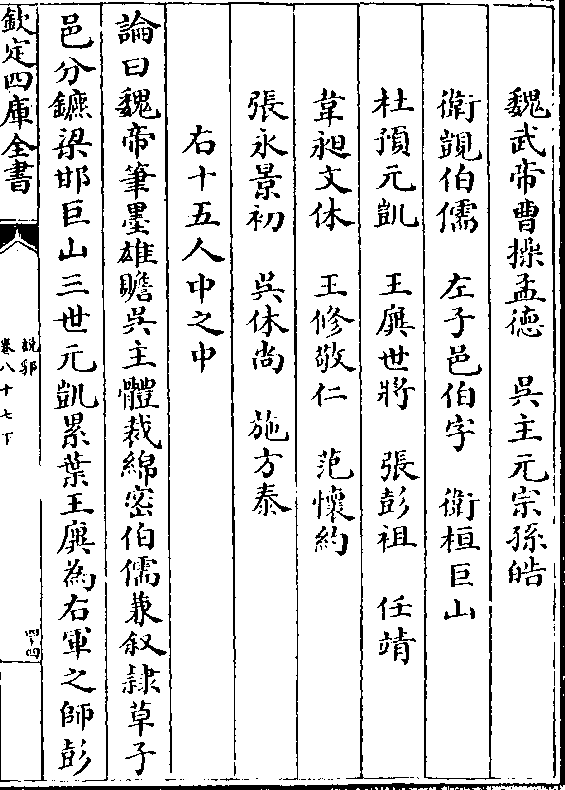 魏武帝曹操孟德　吳主元宗孫皓
衛覬伯儒　左子邑伯字　衛桓巨山
杜預元凱　王廙世將　張彭祖　任靖
韋昶文休　王修敬仁　范懷約
張永景初　吳休尚　施方泰
右十五人中之中
論曰魏帝筆墨雄贍吳主體裁綿密伯儒兼叙隷草子
邑分鑣梁邯巨山三世元凱累葉王廙為右軍之師彭
欽定四庫全書
說郛
卷八十七下
四十四